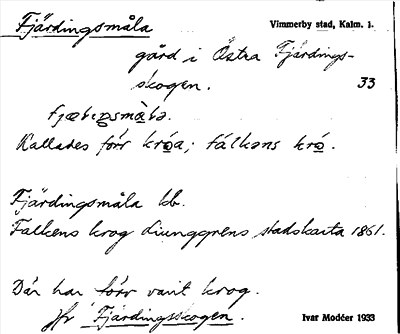 Fjärdingsmåla Vimmerby stad, Kalm. l.
gård i Östra Fjärdings-
skogen. 33
Kallades förr króa; fálkəns kró.
Fjärdingsmåla kb.
Falkens krog Ljunggrens stadskarta 1861.
Där har förr varit krog.
Jfr Fjärdingsskogen. Ivar Modéer 1933